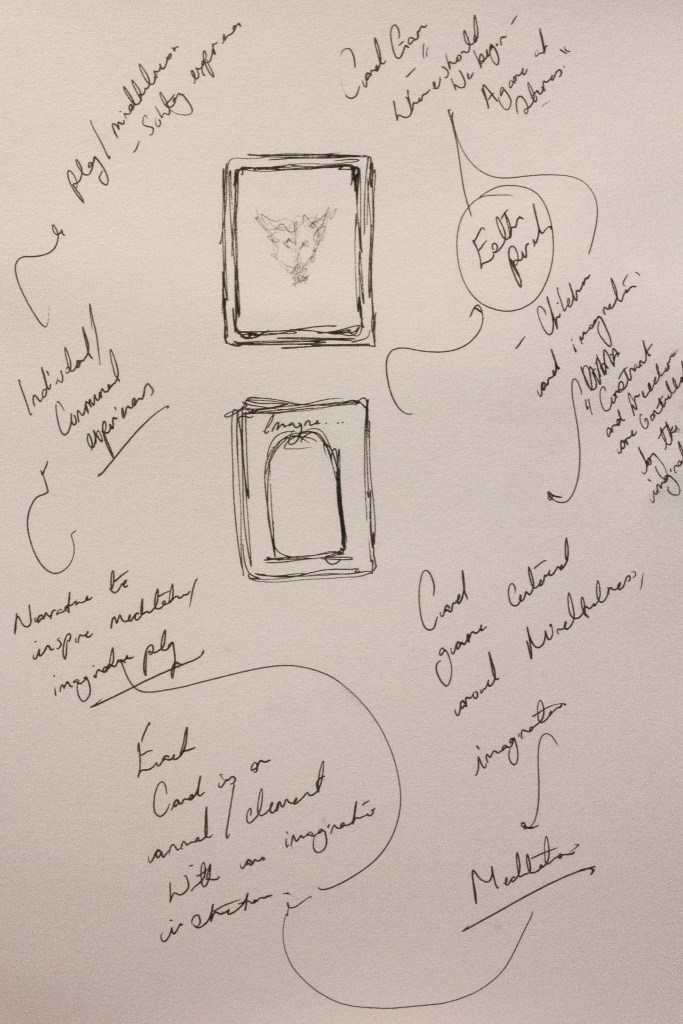 play/mindfulness
- Solitary experience
Card Game
- "Where should
We begin -
A game of
Stories."
- Children
and imagination.
Individual/
Communal
experiences
Imagine...
" Construct
and direction
are controlled
by the
Narrative to
inspire meditative/
imaginative play
Card
game centered
around Mindfulness,
imagination
Each
Card is an
animal/element
With an imagination
instruction.
Meditation